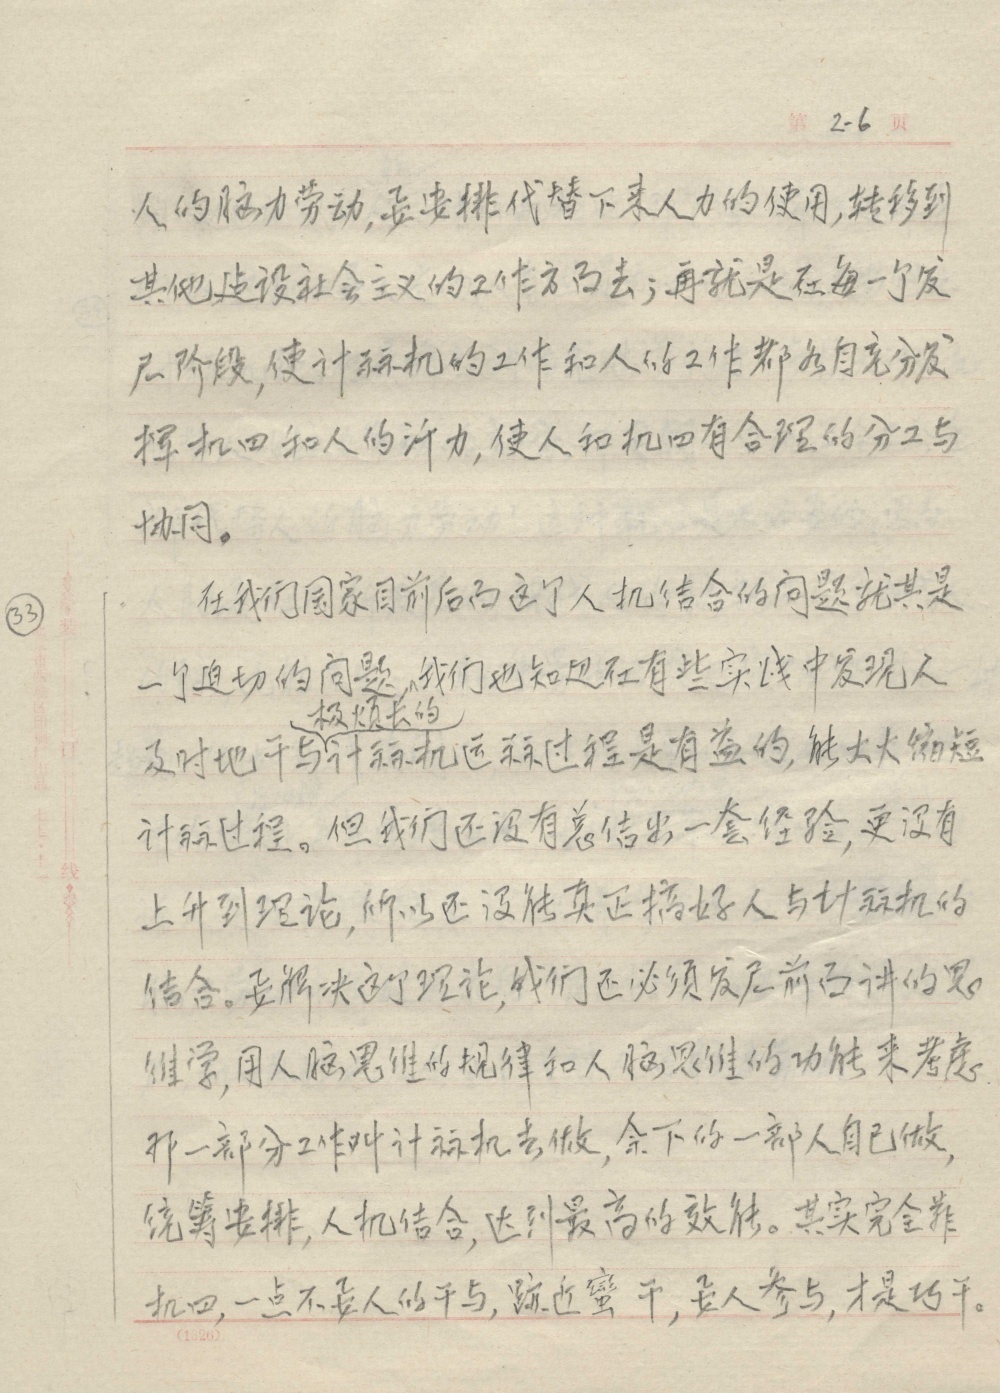 第 2-6 页
人的脑力劳动,要安排代替下来人力的使用,转移到
其他建设社会主义的工作方面去;再就是在每一个发
尸阶段,使计祘机的工作和人的工作都各自充分发
挥机四和人的汗力,使人和机四有合理的分工与
协同。
在我们国家目前后面这个人机结合的问题就其是
33
一个迫切的问题,我们也知道在有些实践中发现人
极烦长的
及时地干与计祘机运祘过程是有益的,能大大缩短
计祘过程。但我们还没有总结出一套经验,更没有
上升到理论,所以还没能真正搞好人与计祘机的
结合。要解决这个理论,我们还必须发尸前面讲的思
维学,用人脑思维的规律和人脑思维的功能来考虑
那一部分工作叫计祘机去做,余下的一部人自己做,
统筹安排,人机结合,达到最高的效能。其实完全靠
机四,一点不要人的干与,跡近蛮干,要人参与,才是巧干。
订
线
(1326)